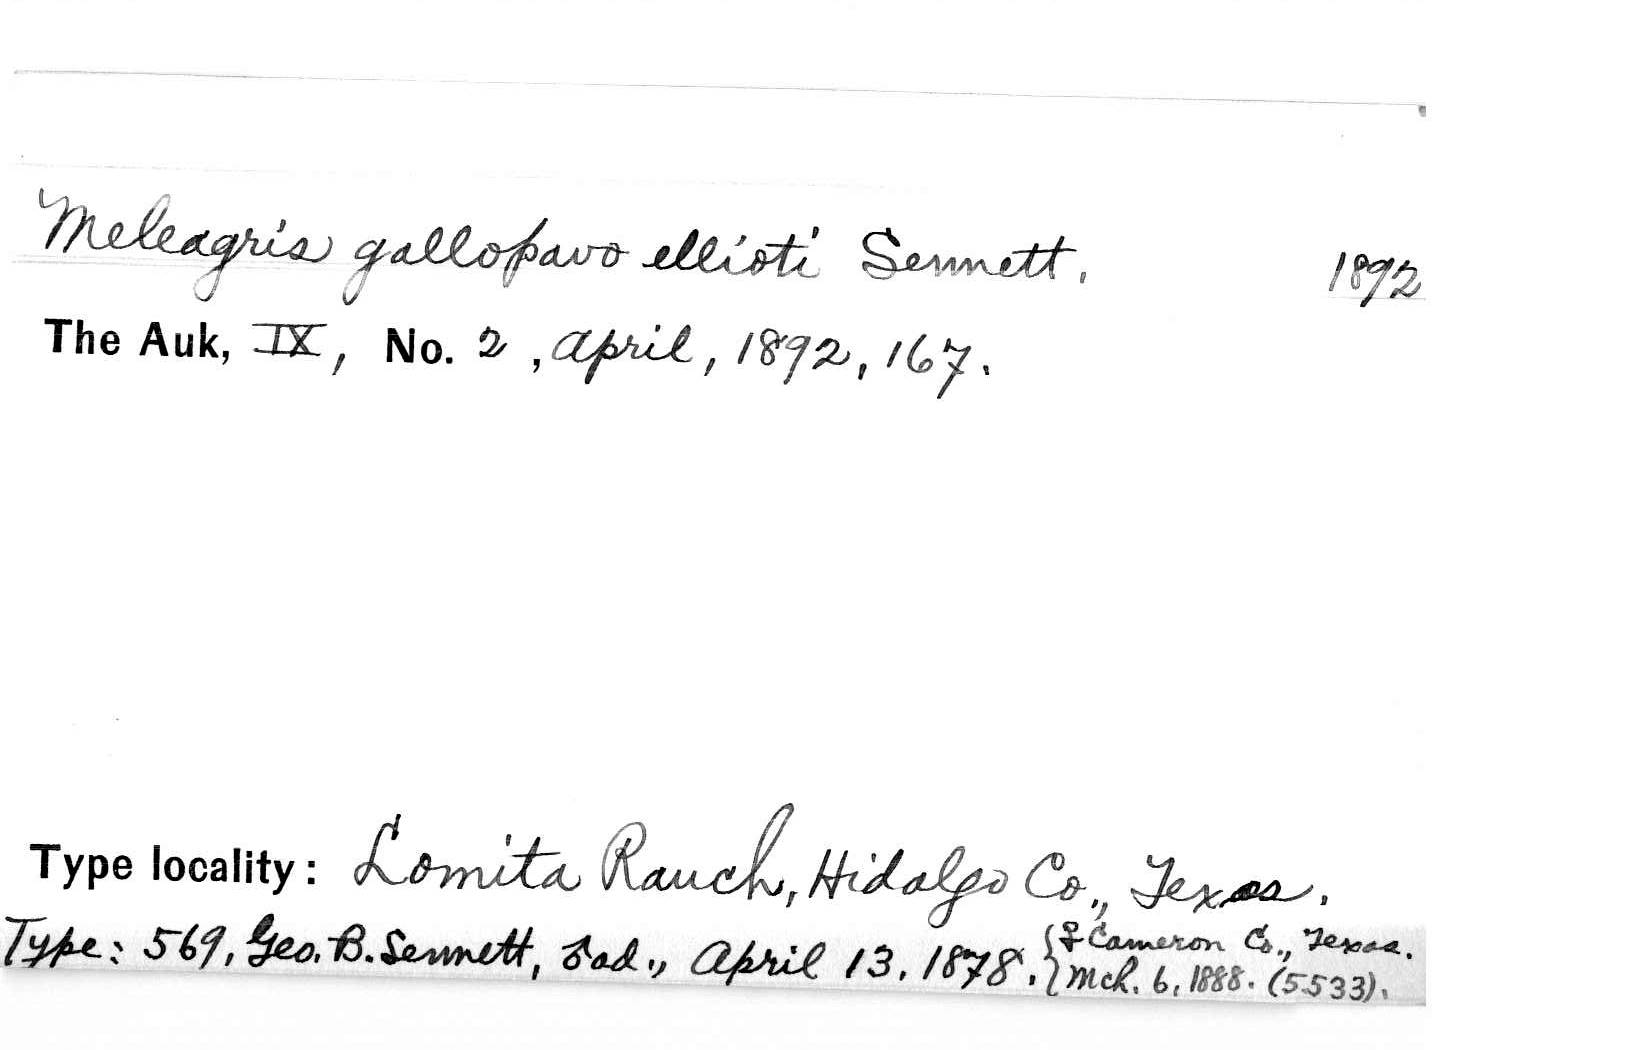 Meleagris gallopavo ellioti Sennett. 1892
The Auk, IX, No. 2, April, 1892, 167.
Type locality: Lomita Ranch, Hidalgo Co., Texas.
Type: 569, Geo. B. Sennett, ♂ad., April 13, 1878. {♀ Cameron Co., Texas.
{Mch. 6, 1888. (5533).